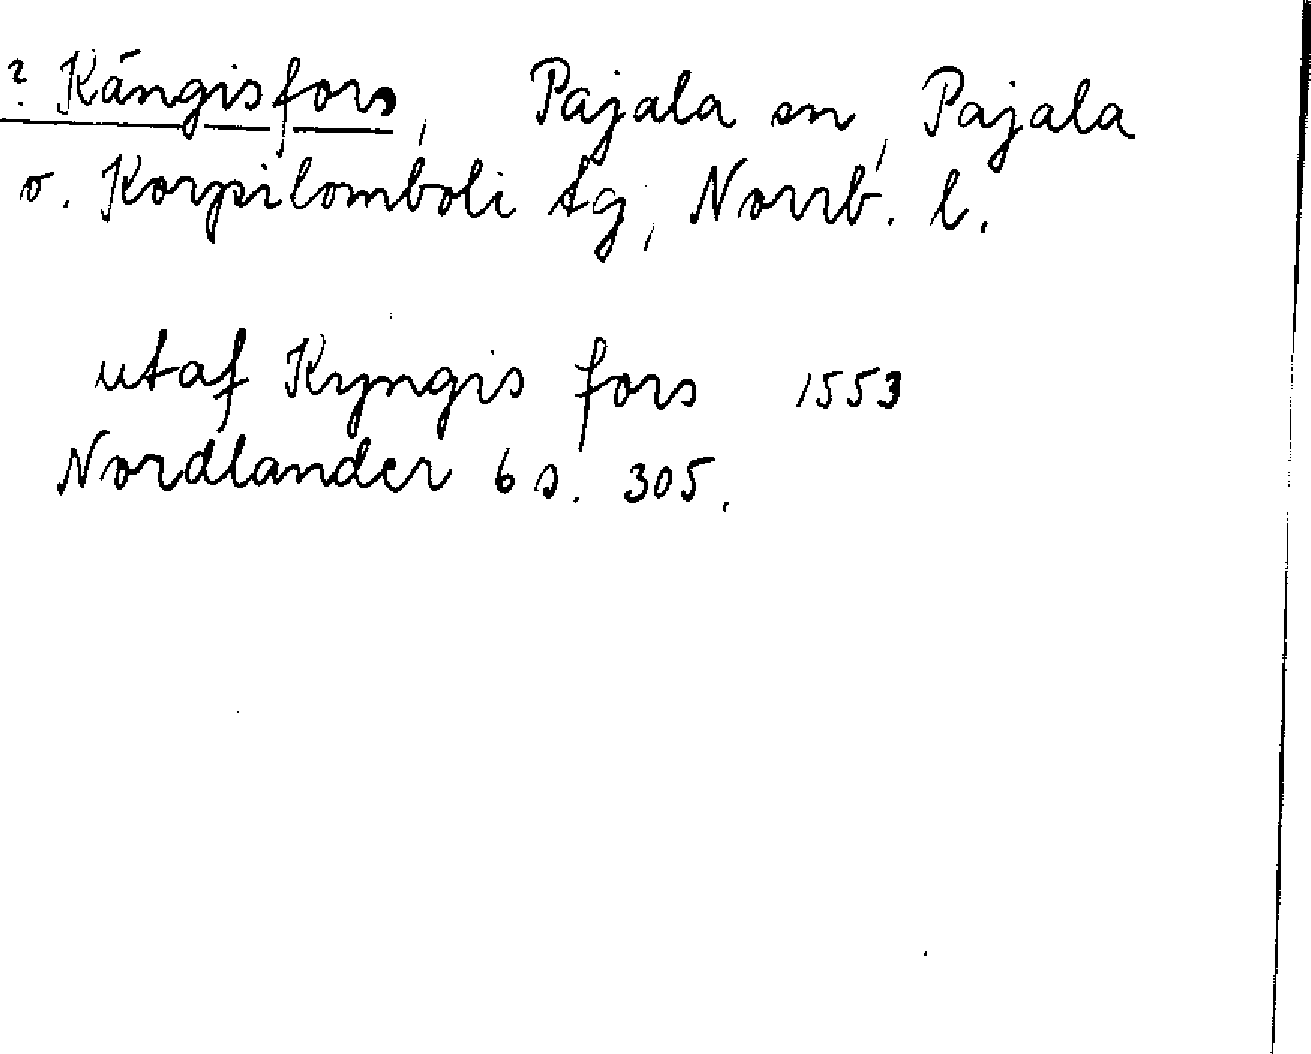 ? Kängisfors, Pajala sn, Pajala
o. Korpilomboli tg, Norrb. l.
utaf Kyngis fors 1553
Nordlander 6 s. 305.